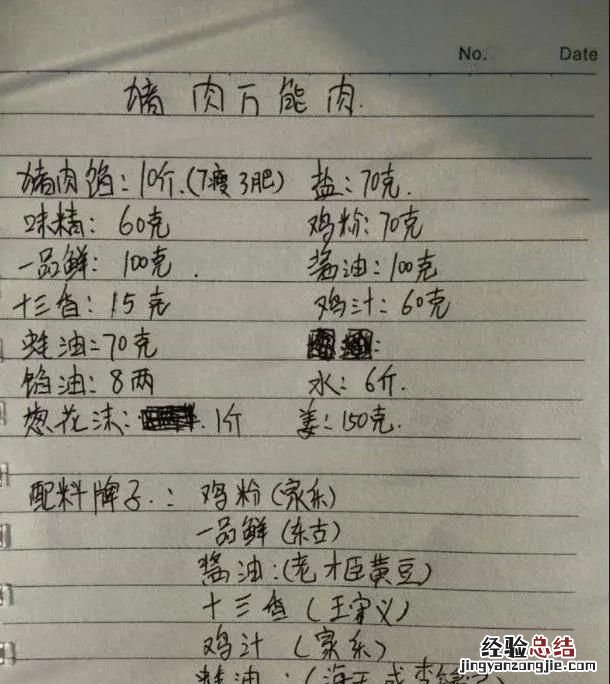 No. Date
猪肉万能肉.
猪肉馅:10斤.(7瘦3肥) 盐:70克.
味精:60克 鸡粉:70克
一品鲜:100克. 酱油:100克
十三香:15克 鸡汁:60克
蚝油:70克
馅油:8两 水:6斤.
葱花沫: 1斤 姜:150克.
配料牌子.:鸡粉(家乐)
一品鲜(东古)
酱油:(老才臣黄豆)
十三香(王守义)
鸡汁(家乐)
蚝油:(海天或李锦记)
经验总结
jingyanzongjie.com